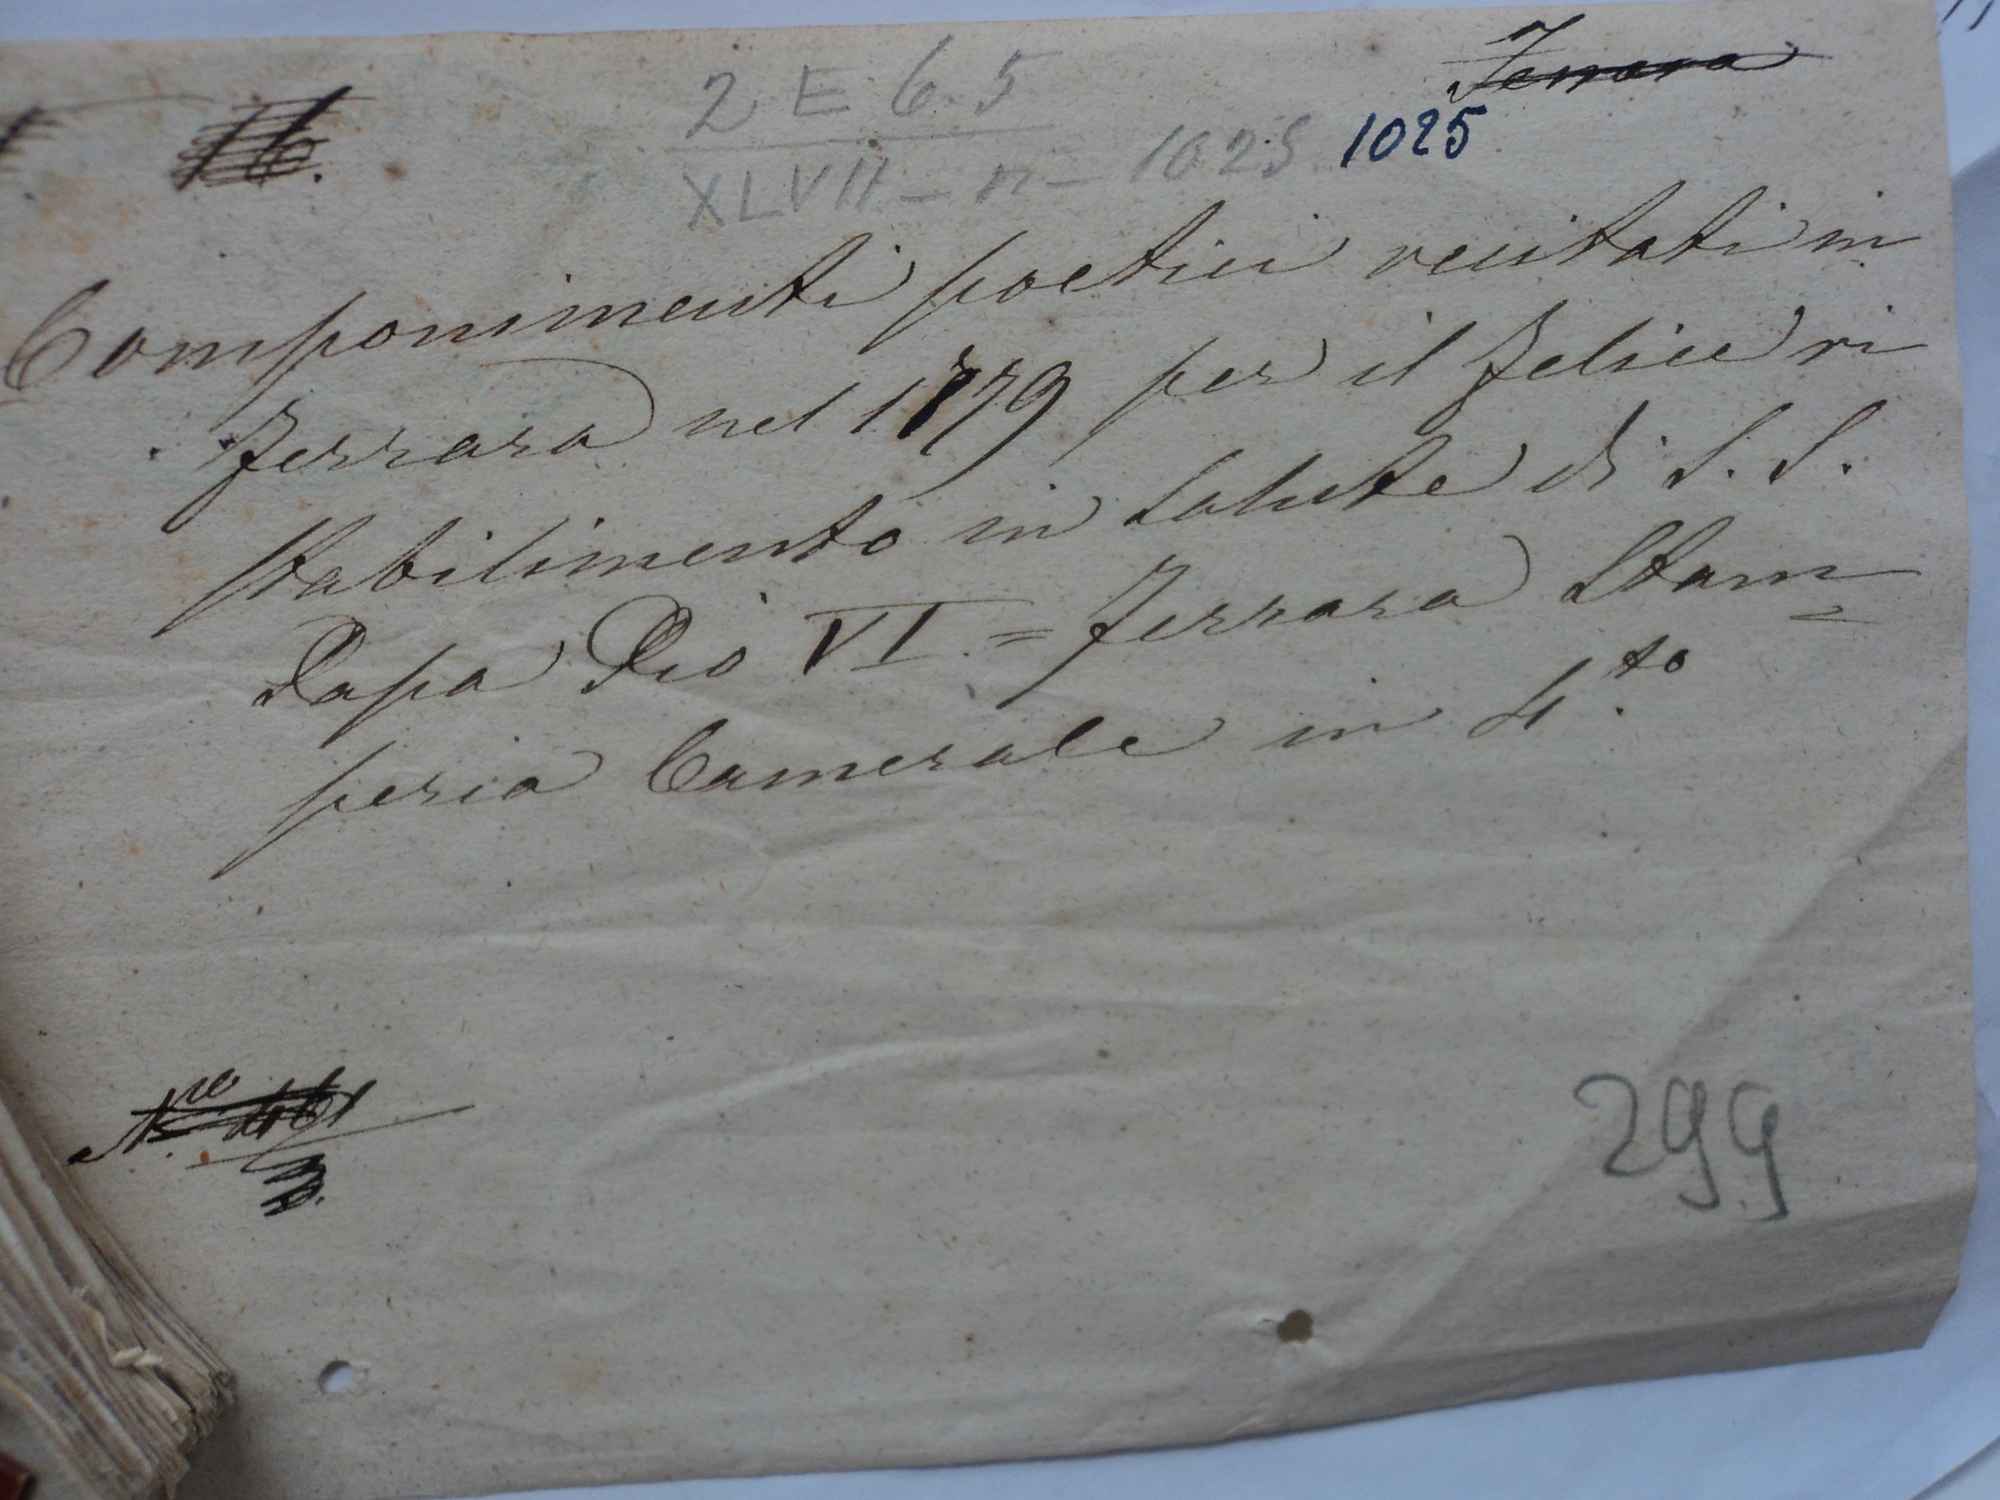 Ferrara
16.
2 E 6.5
XLVII - n - 1025 1025
Componimenti poetici recitati in
Ferrara nel 1779 per il felice ri
stabilimento in salute di S. S.
Papa Pio VI. = Ferrara Stam=
peria Camerale in 4.to
N.ro 461
299